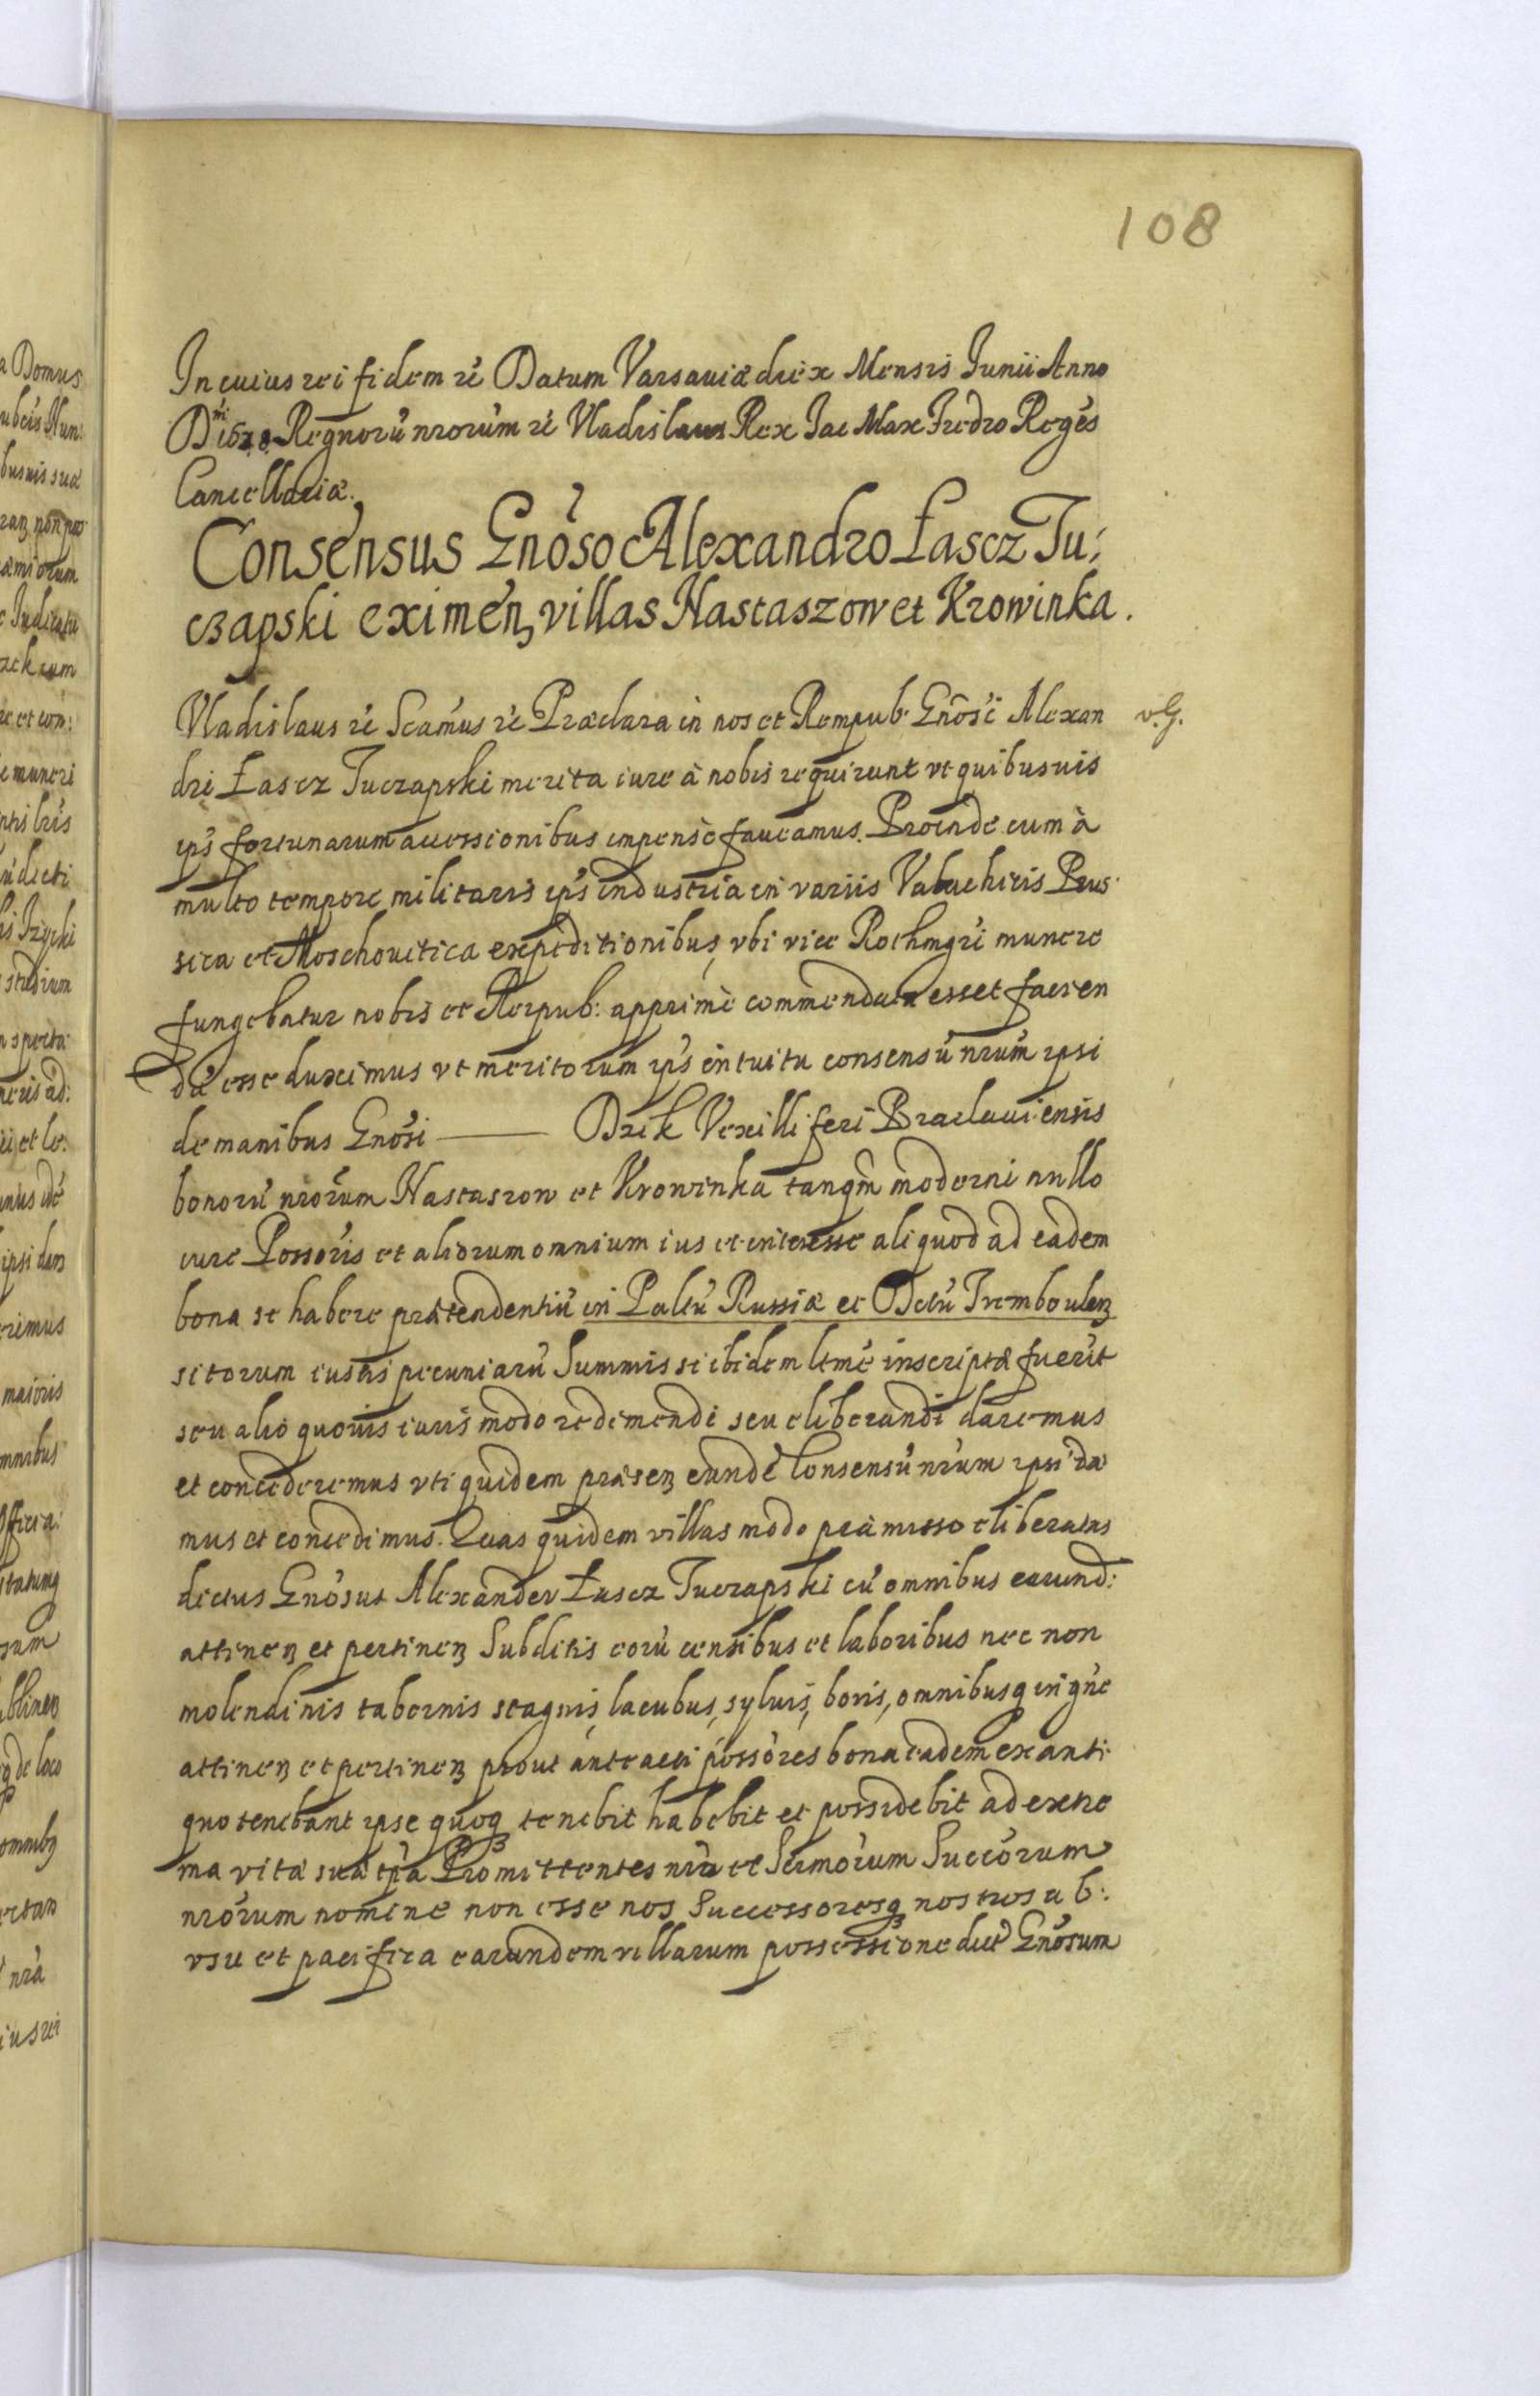 108
In cuius rei fidem ٢c Datum Varsaviæ die x Mensis Junii Anno
Dni 1638 Regnorũ nrorũm ٢c Vladislaus Rex Jac Max Fredro Regẽs
Cancellariæ.
Consensus Gnõso Alexandro Łascz Tu:
czapski eximẽn villas Nastaszow et Krowinka.
Vladislaus ٢c Scamus ٢c Præclara in nos et Rempub: Gnõsi Alexan
v. G.
dri Łascz Tuczapski merita iure à nobis requirunt vt quibusuis
ips fortunarum accessionibus impensè faueamus. Proinde cum à
multo tempore militaris ips industria in variis Valachicis Prus
sica et Moschouitica expeditionibus, vbi vice Rothmgri munere
fungebatur nobis et Reipub: apprimè commendata esset facien
dã esse duximus vt meritorum ips intuitu consensũ nrũm ipsi
de manibus Gnõsi ——— Dzik Vexilliferi Braclauiensis
bonorũ nrorũm Nastaszow et Krowinka tanqm̃ moderni nullo
iure Possoris et aliorum omnium ius et interesse aliquod ad eadem
bona se habere prætendentiũ in Paltũ Russiæ et Dctũ Trembowlen
sitorum iustis pecuniarũ Summis si ibidem ltme inscriptæ fuerĩt
seu alio quouis iuris modo redimendi seu eliberandi daremus
et concederemus vti quidem præsen eundẽ Consensũ nrũm ipsi da
mus et concedimus. Quas quidem villas modo præmisso eliberatas
dictus Gnõsus Alexander Łascz Tuczapski cũ omnibus earund:
attinen et pertinen Subditis eorũ censibus et laboribus nec non
molendinis tabernis stagnis, lacubus, syluis, boris, omnibusq in gñe
attinen et pertinen prout anteacti possõres bona eadem ex anti
quo tenebant ipse quoq tenebit habebit et possidebit ad extre
ma vitæ suæ tp̃a Promittentes nr̃o et Sermorũm Succõrum
nrõrum nomine non esse nos Successoresq nostros ab:
vsu et pacifica earundem villarum possessione dict Gnõsum